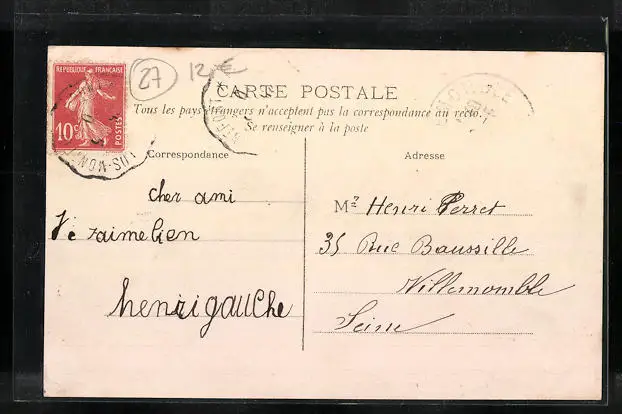 REPUBLIQUE FRANÇAISE
10c POSTES
27
12€
CARTE POSTALE
Tous les pays étrangers n'acceptent pas la correspondance au recto.
Se renseigner à la poste
Correspondance
cher ami
Je taime bien
henri gauche
Adresse
Mr Henri Perret
35 Rue Baussille
Villemomble
Seine